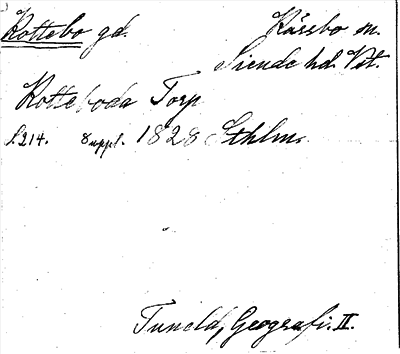 Rottebo gd. Kärrbo sn.
Siende hd. Vst.
Rotteboda Torp
s. 214. 8 uppl. 1828 Sthlm.
Tuneld, Geografi. II.